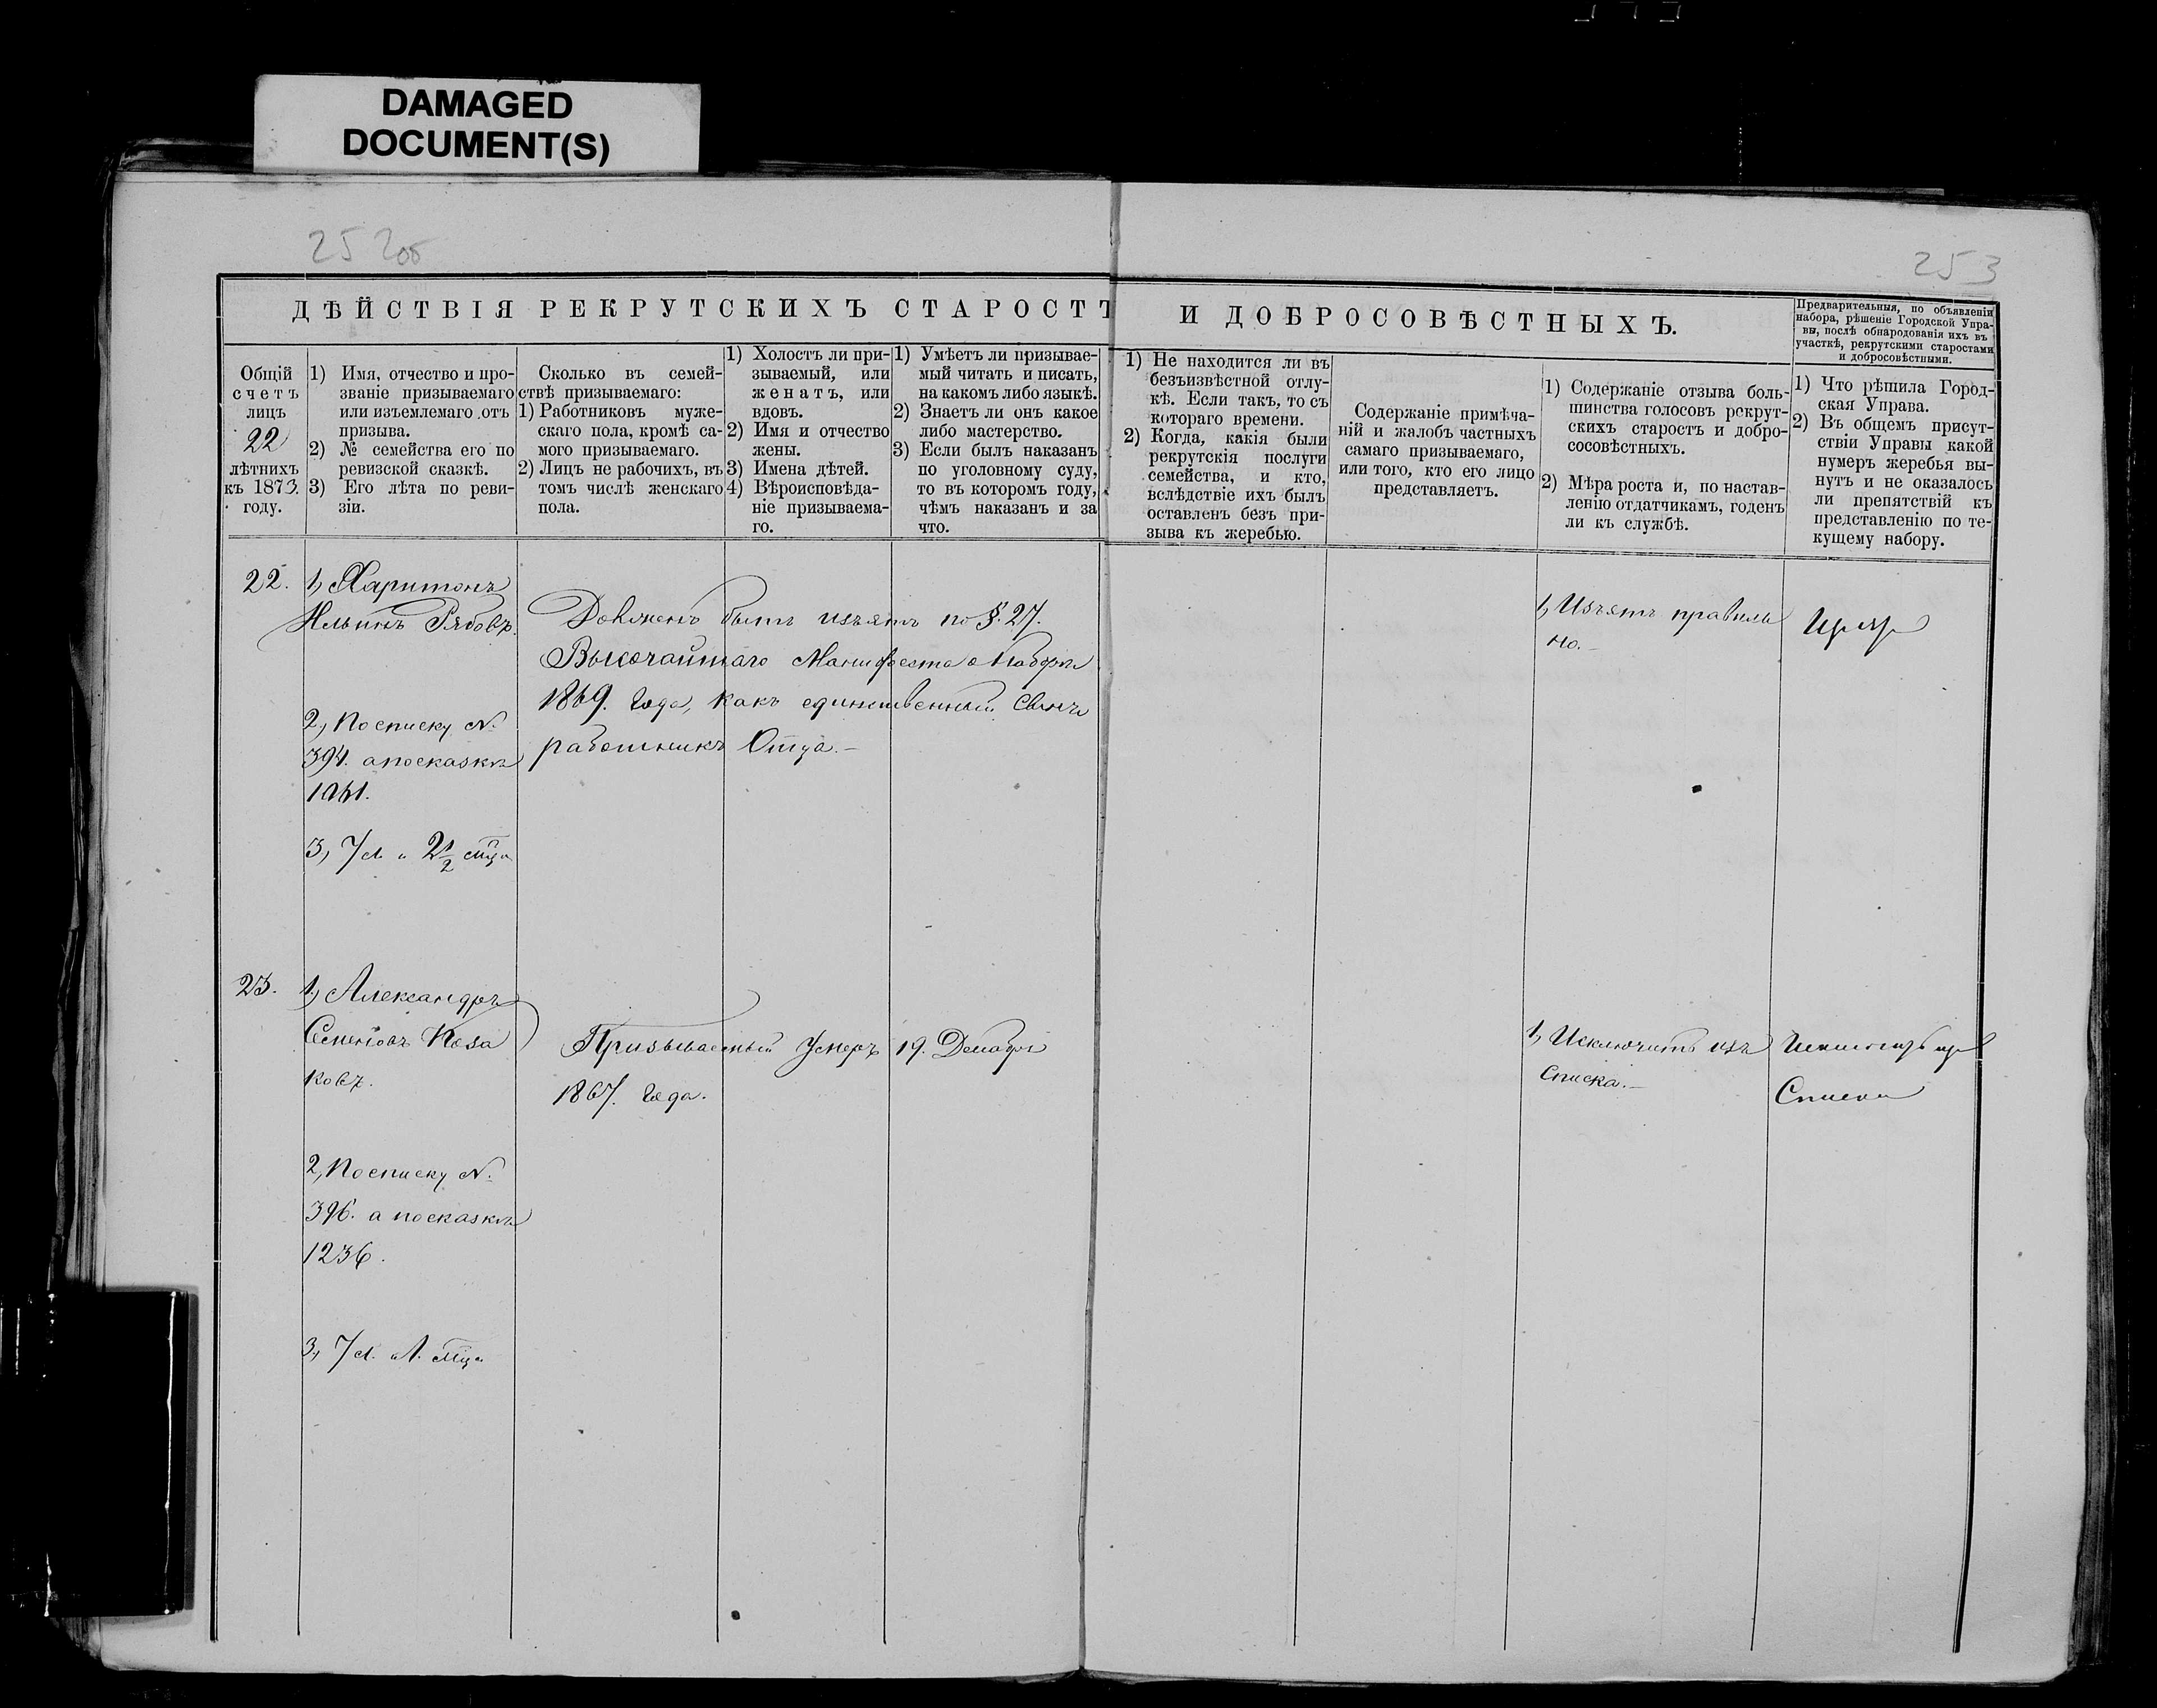 DAMAGED
DOCUMENT(S)
253
ДѢЙСТВІЯ РЕКРУТСКИХЪ СТАРОСТЪ И ДОБРОСОВѢСТНЫХЪ.
Предварительныя, по объявленіи
набора, рѣшеніе Городской Упра-
вы, послѣ обнародованія ихъ въ
участкѣ, рекрутскими старостами
и добросовѣстными.
Общій
счетъ
лицъ
22
лѣтнихъ
къ 1873.
году.
1) Имя, отчество и про-
званіе призываемаго
или изъемлемаго отъ
призыва.
2) № семейства его по
ревизской сказкѣ.
3) Его лѣта по реви-
зіи.
Сколько въ семей-
ствѣ призываемаго:
1) Работниковъ муже-
скаго пола, кромѣ са-
мого призываемаго.
2) Лицъ не рабочихъ, въ
томъ числѣ женскаго
пола.
1) Холостъ ли при-
зываемый, или
женатъ, или
вдовъ.
2) Имя и отчество
жены.
3) Имена дѣтей.
4) Вѣроисповѣда-
ніе призываема-
го.
1) Умѣетъ ли призывае-
мый читать и писать,
на какомъ либо языкѣ.
2) Знаетъ ли онъ какое
либо мастерство.
3) Если былъ наказанъ
по уголовному суду,
то въ которомъ году,
чѣмъ наказанъ и за
что.
1) Не находится ли въ
безъизвѣстной отлу-
кѣ. Если такъ, то съ
котораго времени.
2) Когда, какія были
рекрутскія послуги
семейства, и кто,
вслѣдствіе ихъ былъ
оставленъ безъ при-
зыва къ жеребью.
Содержаніе примѣча-
ній и жалобъ частныхъ
самаго призываемаго,
или того, кто его лицо
представляетъ.
1) Содержаніе отзыва боль-
шинства голосовъ рекрут-
скихъ старостъ и добро-
совѣстныхъ.
2) Мѣра роста и, по настав-
ленію отдатчикамъ, годенъ
ли къ службѣ.
1) Что рѣшила Город-
ская Управа.
2) Въ общемъ присут-
ствіи Управы какой
нумеръ жеребья вы-
нутъ и не оказалось
ли препятствій къ
представленію по те-
кущему набору.
22.
1, Харитонъ
Ильинъ Рябовъ.
2, По списку №
394. а по сказкѣ
1061.
3, 7 л. и 2 1/2 мца
Долженъ быть изъятъ по §. 27.
Высочайшаго Манифеста о наборѣ
1869. года, какъ единственный сынъ
работникъ Отца.—
1, Изъятъ правиль
но.—
23.
1, Александръ
Семеновъ Коза
ковъ.
2, По списку №
396. а по сказкѣ
1236.
3, 7 л. мца
Призываемый умеръ 19. Декабря
1867. года.
1, Исключить изъ
Списка.—
Списка